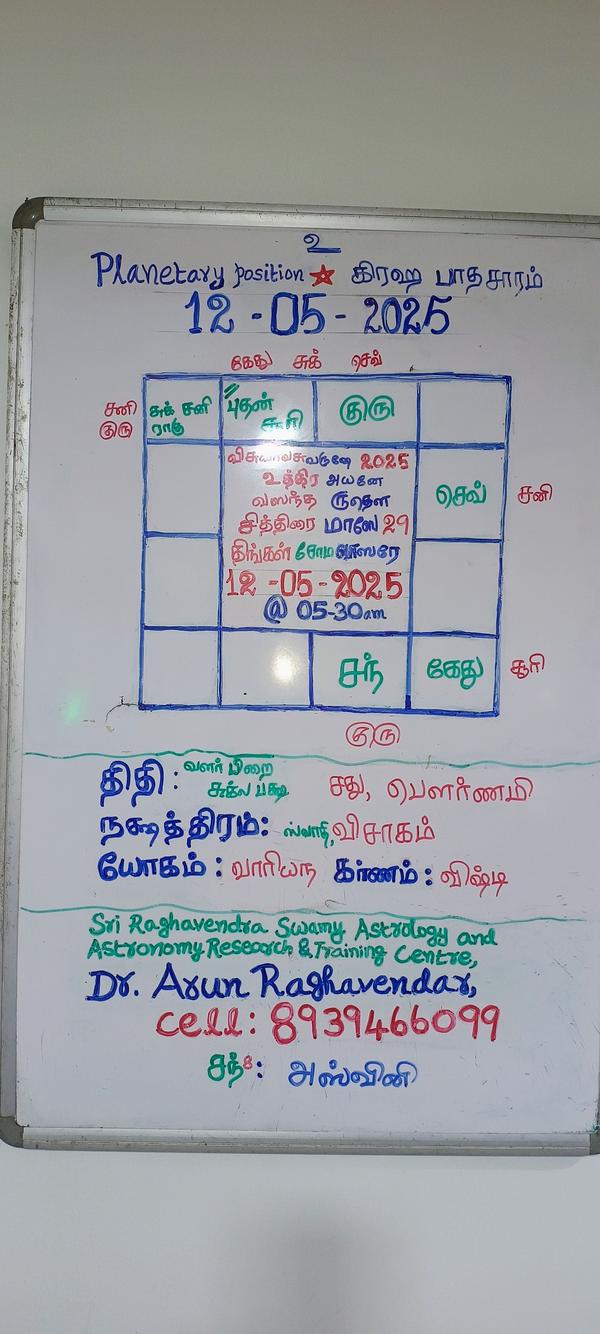 உ
Planetary position ☆ கிரஹ பாதசாரம்
12-05-2025
கேது சுக் செவ்
சனி
குரு
சுக் சனி
ராகு
புதன்
சூரி
குரு
2025
உத்திர அயனே
வஸந்த ருதௌ
சித்திரை மாஸே 29
திங்கள் சோமவாஸரே
12-05-2025
@ 05-30am
செவ்
சனி
சந்
கேது
சூரி
குரு
திதி: வளர் பிறை
சுக்ல பக்ஷ
சது, பௌர்ணமி
நக்ஷத்திரம்: ஸ்வாதி, விசாகம்
யோகம்: வாரியந கர்ணம்: விஷ்டி
Sri Raghavendra Swamy Astrology and
Astronomy Research & Training Centre,
Dr. Arun Raghavendar,
cell: 8939466099
சந்8: அஸ்வினி